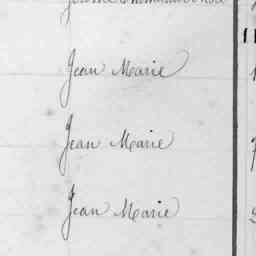 Jean Marie
Jean Marie
Jean Marie